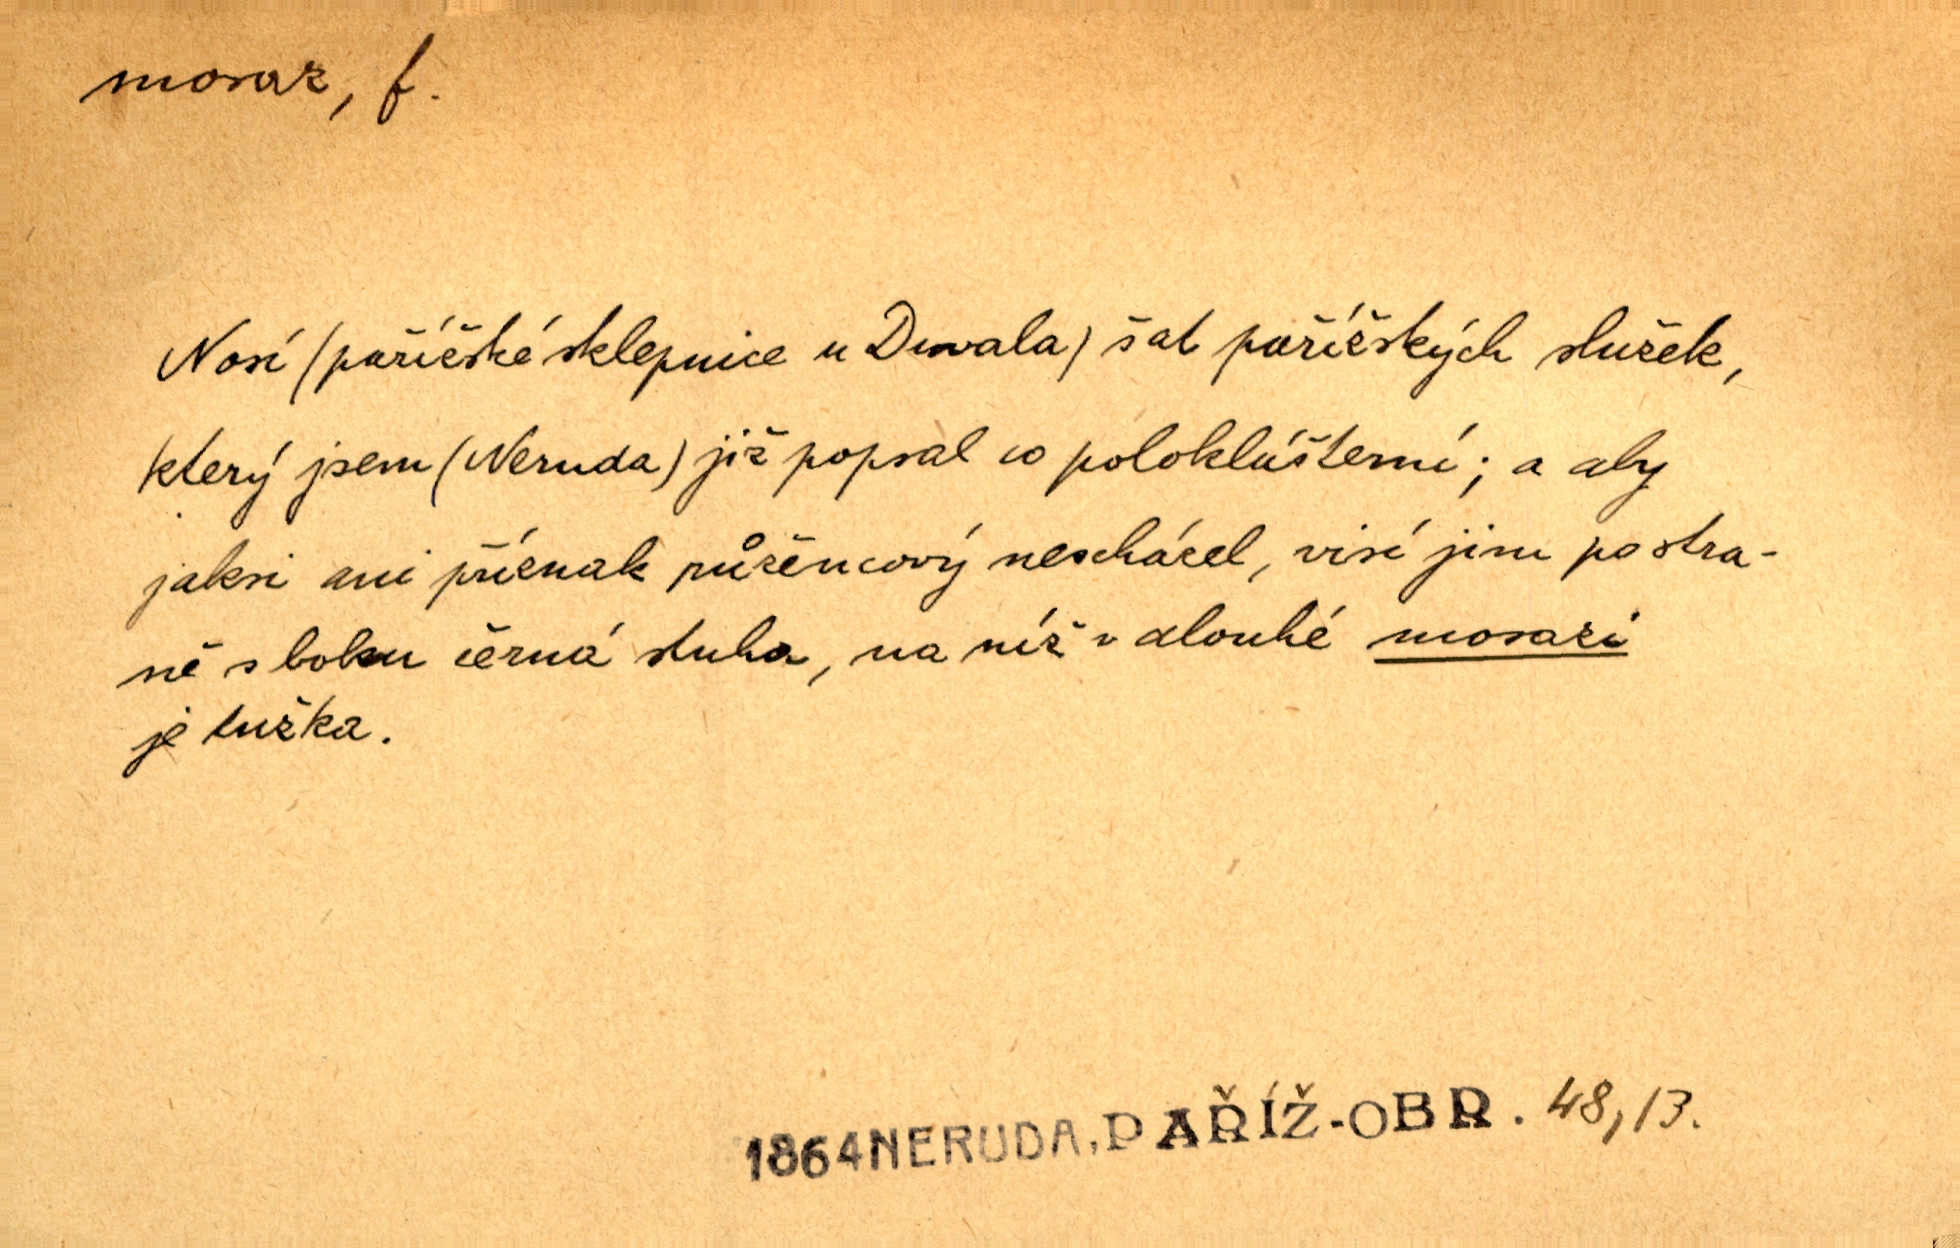 mosaz, f.
Nosí (pařížské sklepnice u Duvala) šat pařížských služek,
který jsem (Neruda) již popsal co poloklášterní; a aby
jaksi ani příznak růžencový nescházel, visí jim po stra-
ně s boku černá stuha, na níž v dlouhé mosazi
je tužka.
1864 NERUDA, PAŘÍŽ-OBR. 48,13.